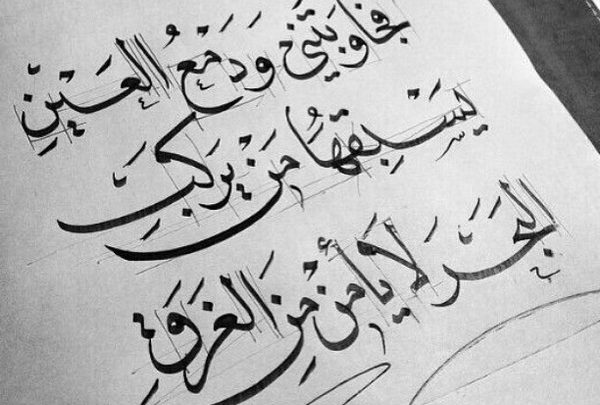 فجاوبتني وَدَمْعُ العَيْنِ
يَسْبِقُهَا مَنْ يَركَبَ
البَحْرَ لَا يَأمَنْ مِنَ الغَرَقِ